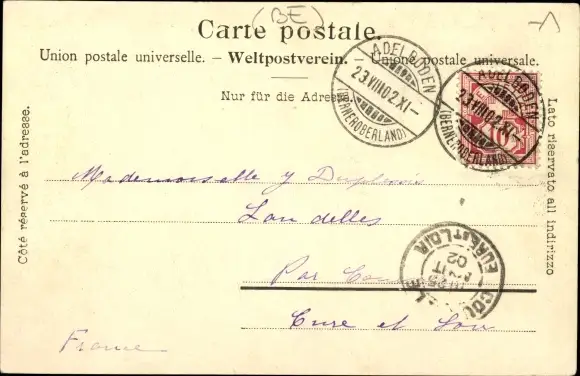 (BE)
Carte postale.
Union postale universelle. – Weltpostverein. – Unione postale universale.
Nur für die Adresse.
Côté réservé à l'adresse.
Lato riservato all indirizzo
ADELBODEN
23.VIII.02.XI–
(BERNEROBERLAND)
ADELBODEN
23.VIII.02.XI–
(BERNEROBERLAND)
10
Mademoiselle Y Duplessis
Landelles
Par
Eure et Loir
France
EURE ET LOIR
25
AOUT
02